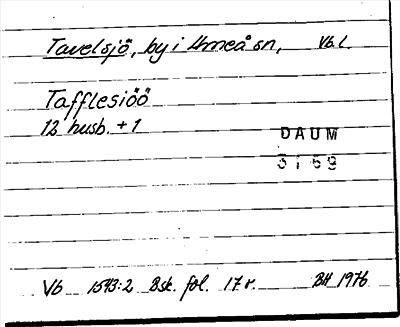 Tavelsjö, by i Umeå sn, Vb l.
Tafflesiöö
12 husb. + 1
DAUM
3169
Vb 1543:2 Bsk. fol. 17 r. BH 1976